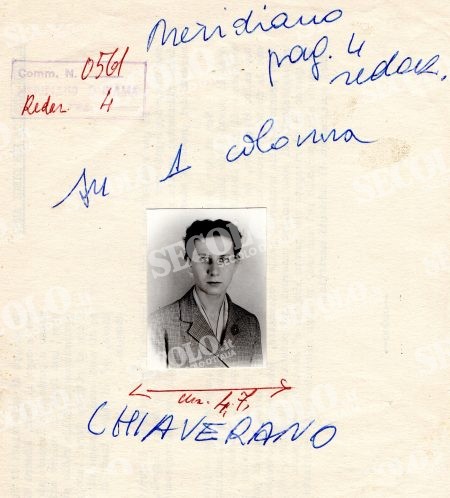 Meridiano
pag. 4
redaz.
Comm. N. 0561
Redaz 4
su 1 colonna
SECOLO
cm. 4,7
CHIAVERANO